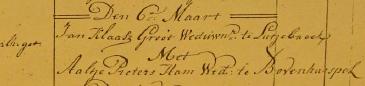 Den 6e Maart
Jan Klaasz Groot Weduwnr. te Lutjebroek
Met
Aaltje Pieters Ham Wed: te Bovenkarspel